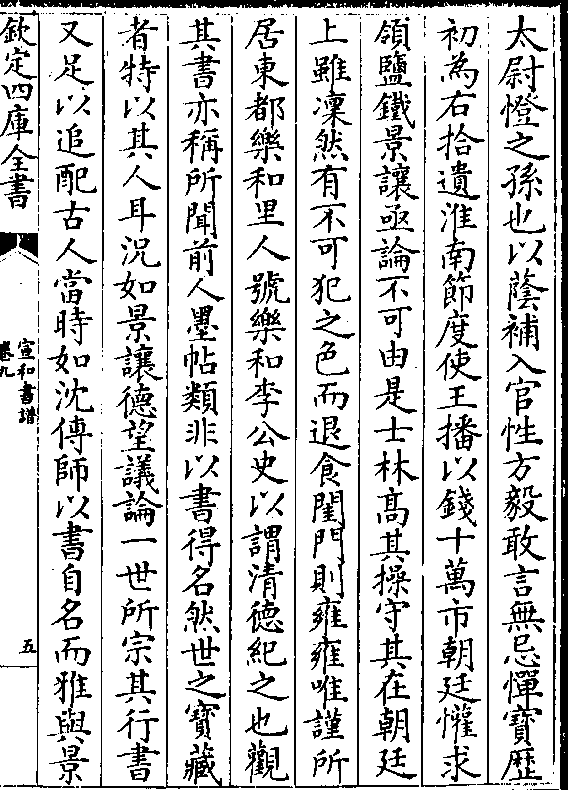 太尉憕之孫也以蔭補入官性方毅敢言無忌憚寶歴
初為右拾遺淮南節度使王播以錢十萬市朝廷懽求
領鹽鐵景讓亟論不可由是士林髙其操守其在朝廷
上雖凜然有不可犯之色而退食閨門則雍雍唯謹所
居東都樂和里人號樂和李公史以謂清德紀之也觀
其書亦稱所聞前人墨帖類非以書得名然世之寶藏
者特以其人耳况如景讓德望議論一世所宗其行書
又足以追配古人當時如沈傳師以書自名而雅與景
欽定四庫全書
宣和書譜
卷九
五